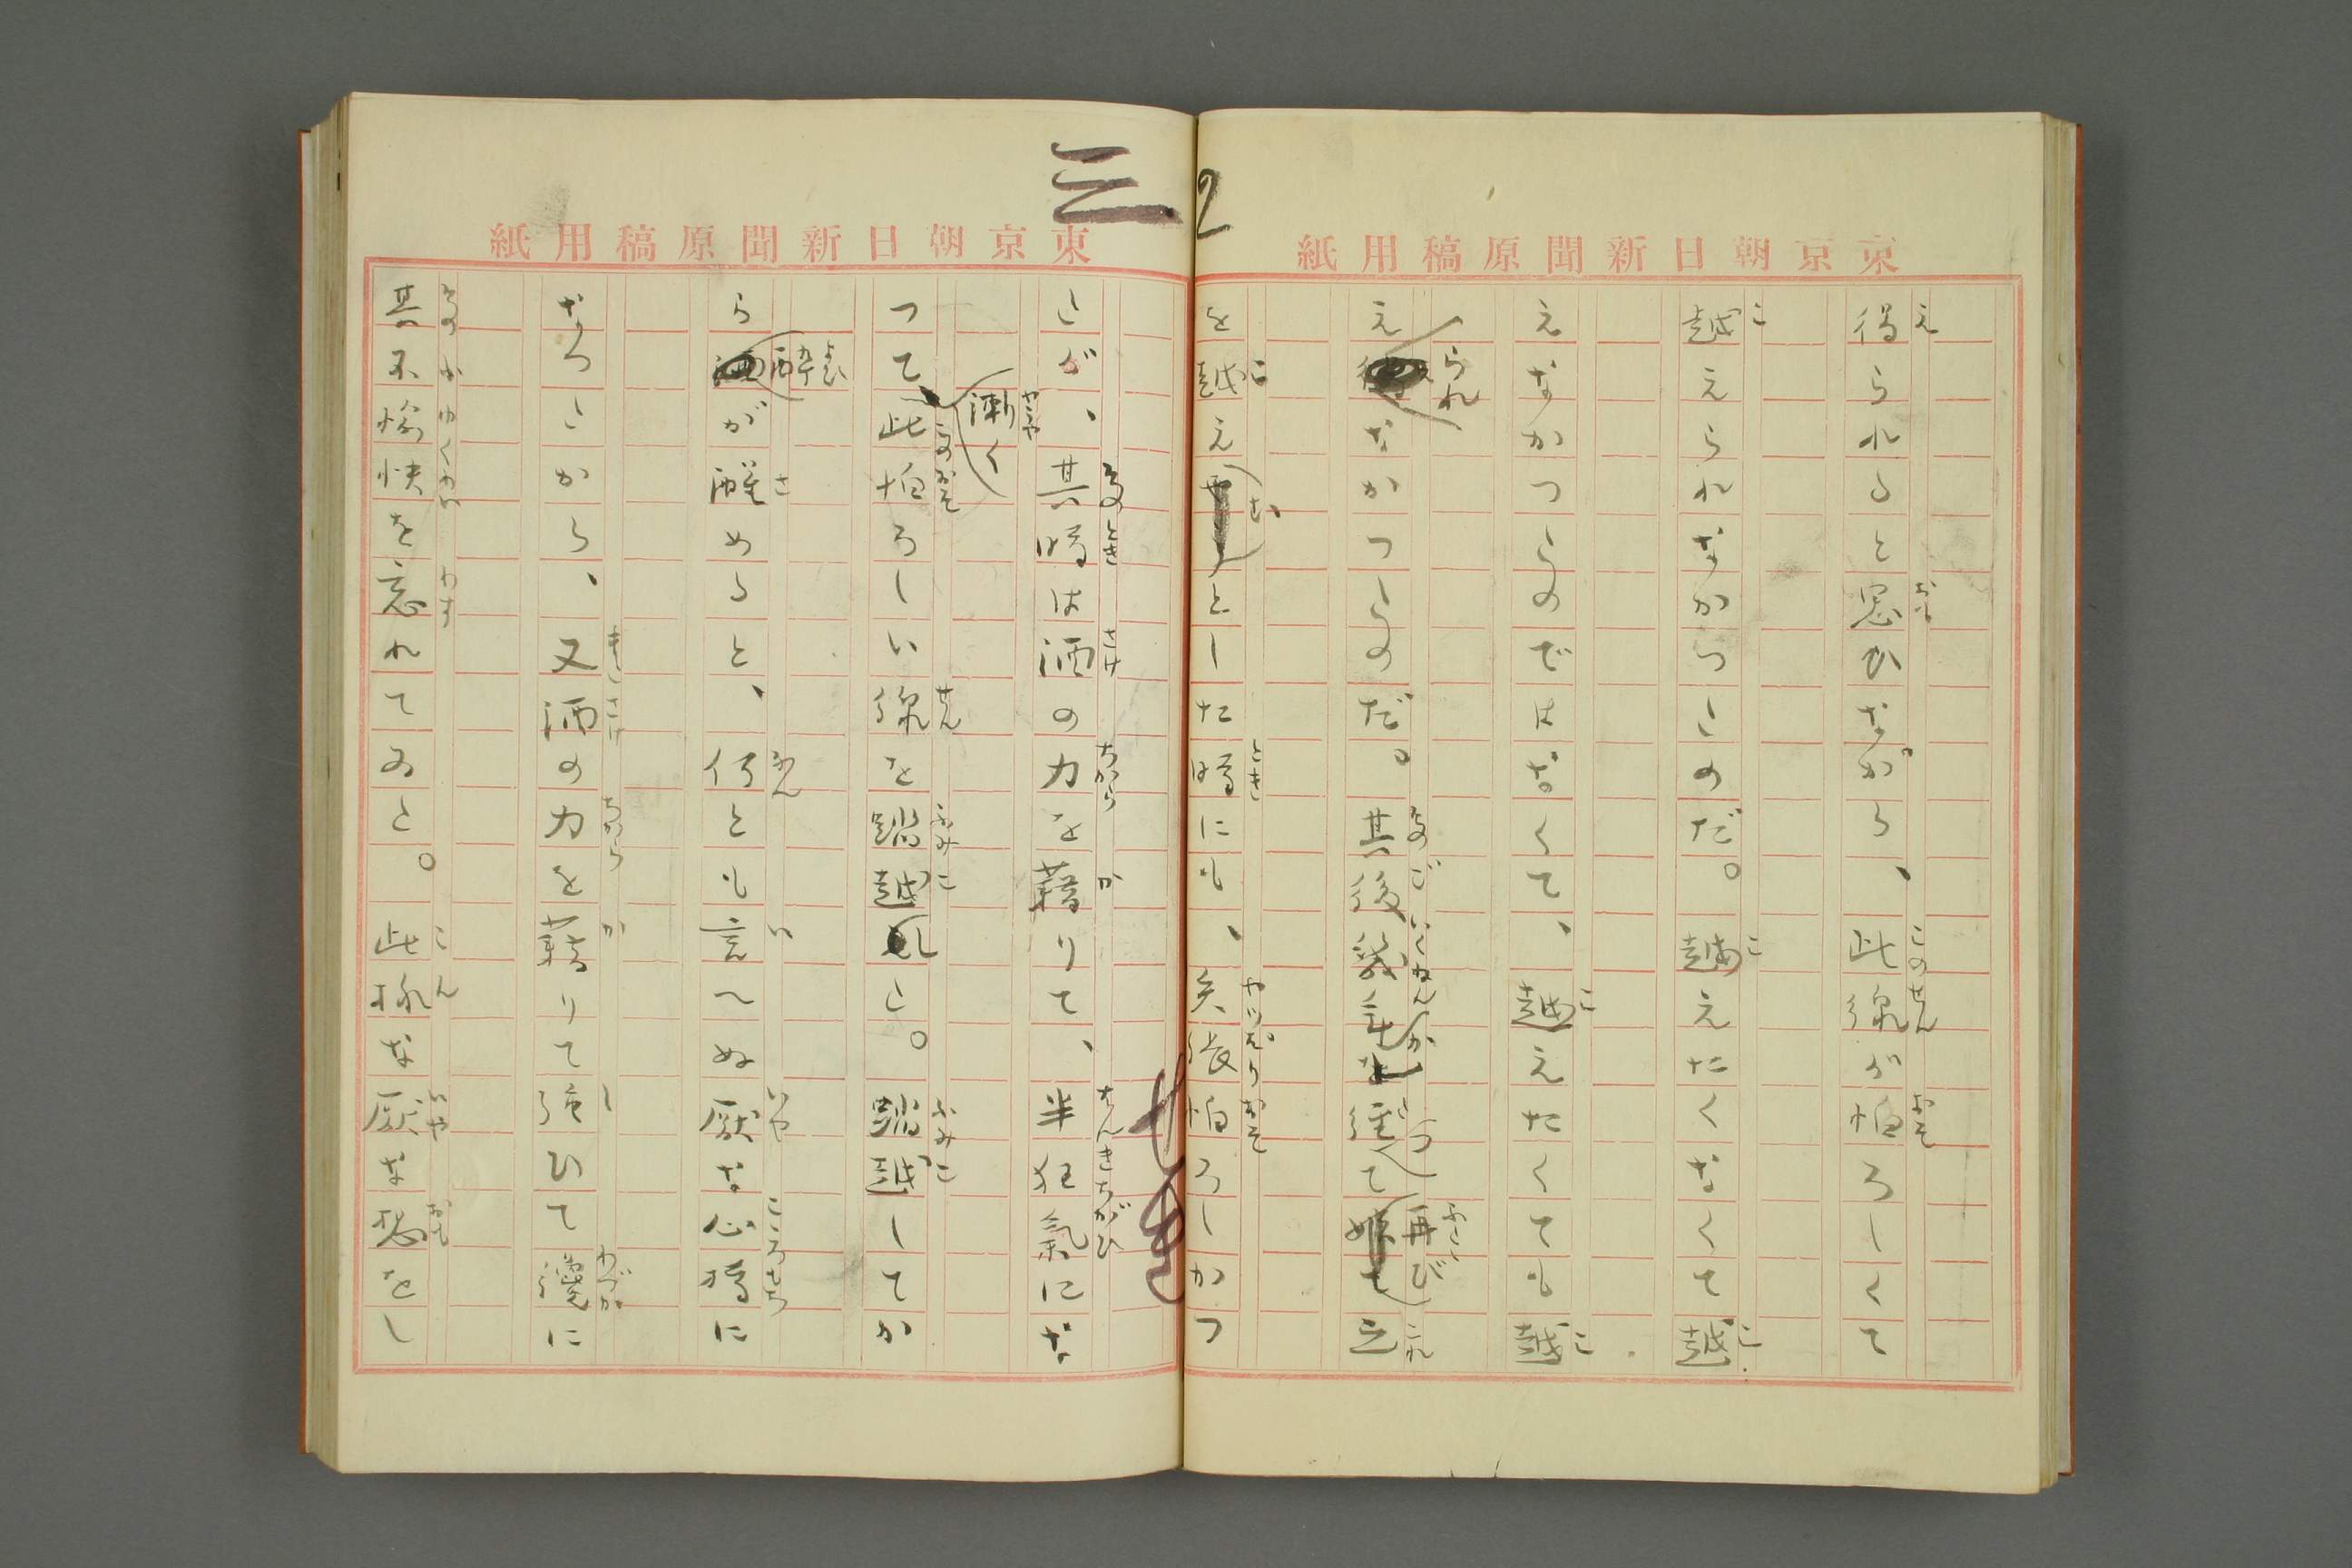 2
東京朝日新聞原稿用紙
得られると思ひながら、此線が怕ろしくて
越えられなかつたのだ。越えたくなくて越
えなかつたのではなくて、越えたくても越
えられなかつたのだ。其後幾年か經つて再び之
を越えむとした時にも、矢張怕ろしかつ
三
東京朝日新聞原稿用紙
たが、其時は酒の力を藉りて、半狂氣にな
つて、漸く此怕ろしい線を踏越した。踏越してか
ら酔が醒めると、何とも言へぬ厭な心持に
なつたから、又酒の力を藉りて強ひて纔に
其不愉快を忘れてゐた。此様な厭な想をし